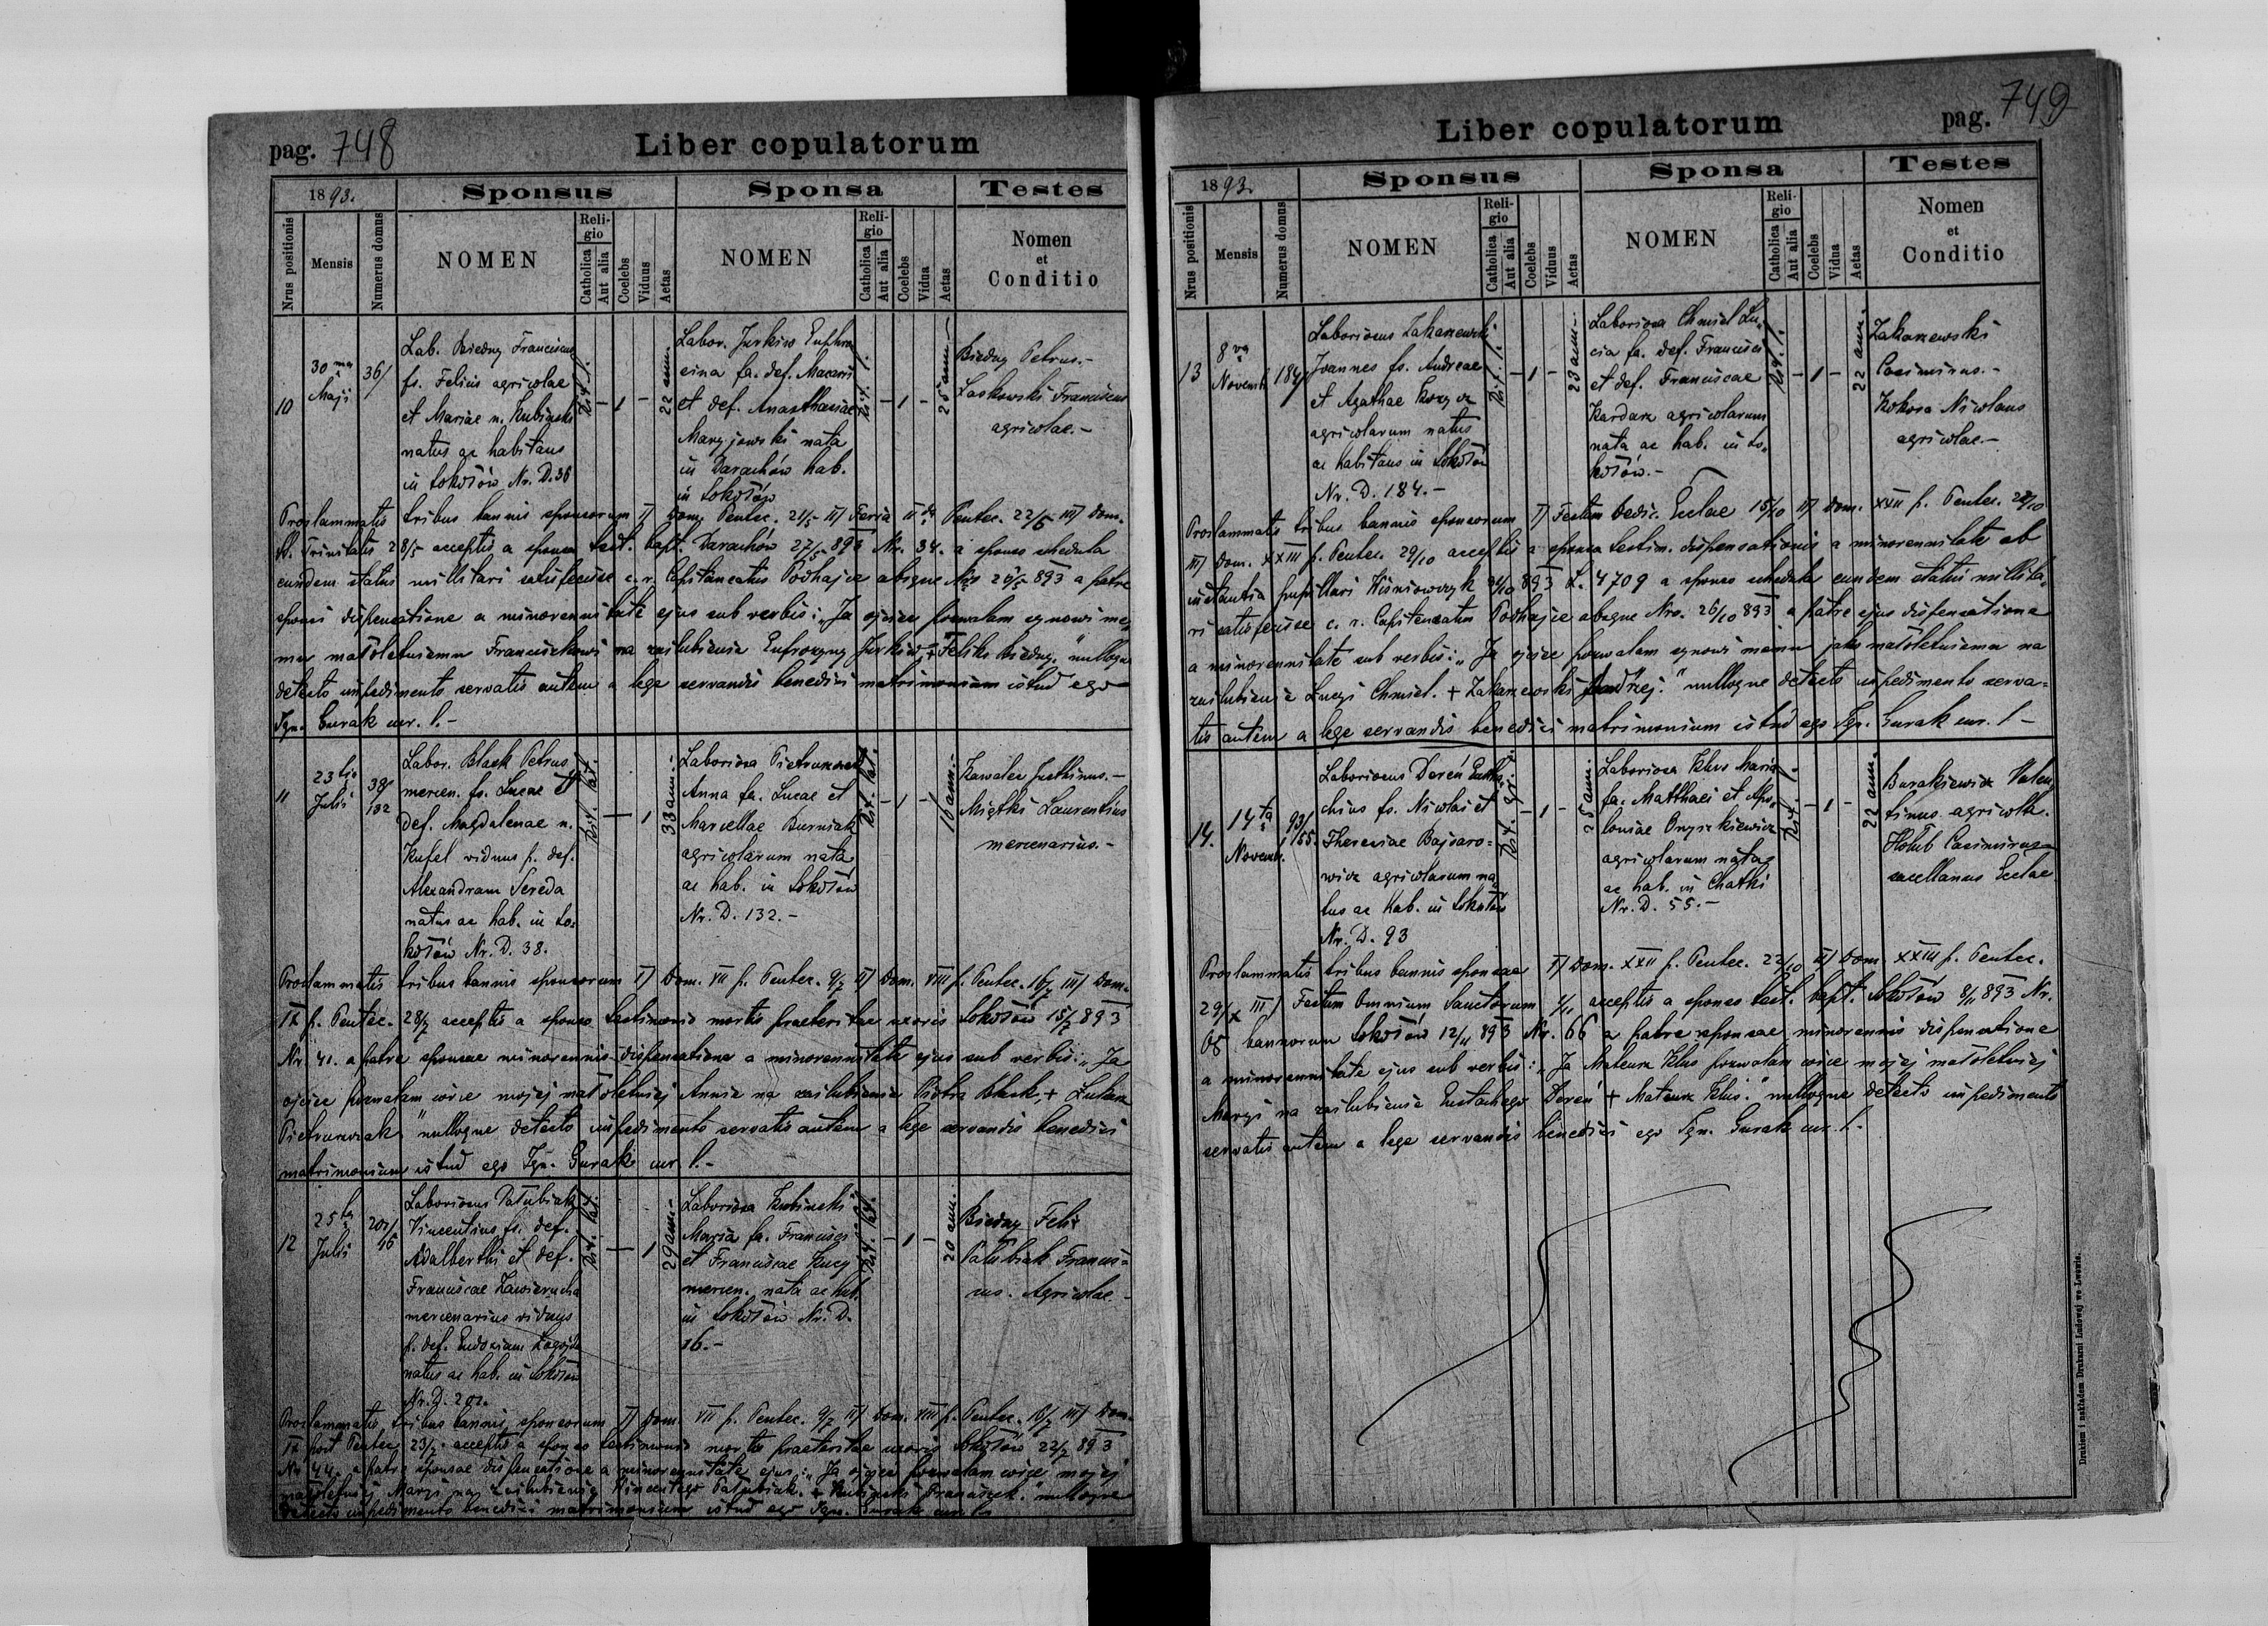 pag. 748
Liber copulatorum
1893.
Sponsus
Sponsa
Testes
Nrus positionis
Mensis
Numerus domus
NOMEN
Religio
Catholica
Aut alia
Coelebs
Viduus
Aetas
NOMEN
Religio
Catholica
Aut alia
Coelebs
Vidua
Aetas
Nomen
et
Conditio
10
30ma
Maji
36/
Lab. Biedny Franciscus
fs. Felicis agricolae
et Mariae n. Kubiński
natus ac habitans
in Sokołów Nr. D. 36
Rit. l.
- 1 -
22 ann.
Labor. Jurkiw Euphro
cina fa. def. Macarii
et def. Anasthasiae
nata
in Darachów hab.
in Sokołów
Rit. l.
- 1 -
25 ann.
Biedny Petrus.-
Laskowski Franciscus
agricolae.-
Proclammatis tribus bannis sponsorum I) Dom. Pentec. 21/5 II) Feria II da Pentec. 22/5 III) Dom.
SS. Trinitatis 28/5 acceptis a sponsa test. bapt. Darachów 27/5 893 Nr. 34. a sponso schedula
eundem statui militari satisfecisse c. r. Capitaneatus Podhajce absque Nro 26/5 893 a patre
sponsi dispensatione a minorennitate ejus sub verbis: „Ja ojciec pozwalam synowi me
mu małoletniemu Franciszkowi na zaślubienie Eufrozyny Jurkiw + Feliks Biedny." nulloque
detecto impedimento servatis autem a lege servandis benedixi matrimonium istud ego
Ign. Gurak cur. l.-
11
23tio
Julii
38/
132
Labor. Blask Petrus
mercen. fs. Lucae et
def. Magdalenae n.
Kufel viduus p. def.
Alexandram Sereda
natus ac hab. in So-
kołów Nr. D. 38.
Rit. lat.
- 1
33 ann.-
Laboriosa Pietruszczak
Anna fa. Lucae et
Marcellae Burniak
agricolarum nata
ac hab. in Sokołów
Nr. D. 132.-
Rit. lat.
- 1 -
ann.-
Kawalec
Laurentius
mercenarius.-
Proclammatis tribus bannis sponsorum I) Dom. VII p. Pentec. 9/7 II) Dom. VIII p. Pentec. 16/7 III) Dom.
IX p. Pentec. 23/7 acceptis a sponso testimonio mortis praeteritae uxoris Sokołów 15/7 893
Nr. 41. a patre sponsae minorennis dispensatione a minorennitate ejus sub verbis: „Ja
ojciec pozwalam córce mojej małoletniej Annie na zaślubienie Piotra Blask, + Łukasz
Pietruszczak" nulloque detecto impedimento servatis autem a lege servandis benedixi
matrimonium istud ego Ign. Gurak cur. l.-
12
25ta
Julii
202/
16
Laboriosus Pałubiak
Vincentius fs. def.
Adalberthi et def.
Franciscae Zawierucha
mercenarius viduus
p. def. Eudoxiam
natus ac hab. in Sokołów
Nr. D. 202.
Rit. lat.
- 1
29 ann.-
Laboriosa Kubinski
Maria fa. Francisci
et Franciscae
mercen. nata ac hab.
in Sokołów Nr. D.
16.-
Rit. lat.
- 1 -
20 ann.
Biedny Felix
Pałubiak Francis-
cus. Agricolae.-
Proclammatis tribus bannis sponsorum I) Dom. VII p. Pentec. 9/7 II) Dom. VIII p. Pentec. 16/7 III) Dom.
IX post Pentec. 23/7 acceptis a sponso testimonio mortis praeteritae uxoris Sokołów 22/7 893
Nr. 44. a patre sponsae dispensatione a minorennitate ejus: „Ja ojciec pozwalam córce mojej
małoletniej Maryi na zaślubienie Wincentego Pałubiak. + Kubiński Franciszek." nulloque
detecto impedimento benedixi matrimonium istud ego Ign. Gurak cur. l.-
pag. 749
Liber copulatorum
1893.
Sponsus
Sponsa
Testes
Nrus positionis
Mensis
Numerus domus
NOMEN
Religio
Catholica
Aut alia
Coelebs
Viduus
Aetas
NOMEN
Religio
Catholica
Aut alia
Coelebs
Vidua
Aetas
Nomen
et
Conditio
13
8va
Novemb.
184/
Laboriosus Zakarzewski
Joannes fs. Andreae
et Agathae
agricolarum natus
ac habitans in Sokołów
Nr. D. 184.-
Rit. l.
- 1 -
23 ann.-
Laboriosa Chmiel Lu-
cia fa. def. Francisci
et def. Franciscae
Kardasz agricolarum
nata ac hab. in So-
kołów.-
Rit. l.
- 1 -
22 ann.
Zakarzewski
Casimirus.-
Kokosa Nicolaus
agricolae.-
Proclammatis tribus bannis sponsorum I) Festum Dedic. Eclae 15/10 II) Dom. XXII p. Pentec. 22/10
III) Dom. XXIII p. Pentec. 29/10 acceptis a sponsa testim. dispensationis a minorennitate ab
instantia pupillari Wiśniowczyk 893 L. 4709 a sponso schedula eundem statui milita-
ri satisfecisse c. r. Capitaneatus Podhajce absque Nro. 26/10 893 a patre ejus dispensatione
a minorennitate sub verbis: „Ja ojciec pozwalam synowi memu jako małoletniemu na
zaślubienie Łucyi Chmiel. + Zakarzewski Jendrzej." nulloque detecto impedimento serva-
tis autem a lege servandis benedixi matrimonium istud ego Ign. Gurak cur. l.-
14.
14ta
Novemb.
93/
55.
Laboriosus Doreń Eusta-
chius fs. Nicolai et
Theresiae Bajsaro-
wicz agricolarum na-
tus ac hab. in Sokołów
Nr. D. 93
Rit. gr.
- 1 -
25 ann.
Laboriosa Klus Maria
fa. Matthaei et Apo-
loniae Onyszkiewicz
agricolarum nata
ac hab. in Chatki
Nr. D. 55.-
Rit. l.
- 1 -
22 ann.
Burakiewicz Valen-
tinus agricola.
Hołub Casimirus
sacellanus Eclae
Proclammatis tribus bannis sponsae I) Dom. XXII p. Pentec. 22/10 II) Dom. XXIII p. Pentec.
29/X III) Festum Omnium Sanctorum 1/11 acceptis a sponso test. bapt. Sokołów 8/11 893 Nr.
65 bannorum Sokołów 12/11 893 Nr. 66 a patre sponsae minorennis dispensatione
a minorennitate ejus sub verbis: „Ja Mateusz Klus pozwalam córce mojej małoletniej
Maryi na zaślubienie Eustachego Doreń + Mateusz Klus." nulloque detecto impedimento
servatis autem a lege servandis benedixi ego Ign. Gurak cur. l.
Drukiem i nakładem Drukarni Ludowej we Lwowie.